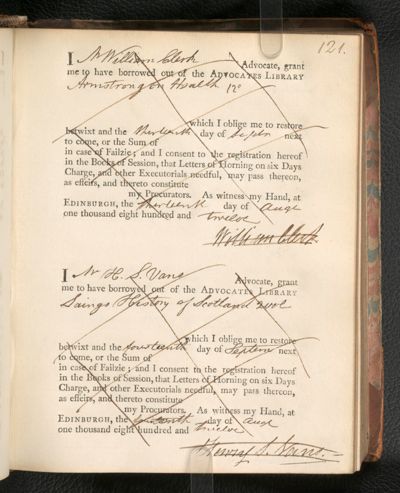 121.
I Mr William Clerk Advocate, grant
me to have borrowed out of the ADVOCATES LIBRARY
Armstrong on Health 12o
which I oblige me to restore
betwixt and the thirteenth day of Septr next
to come, or the Sum of
in case of Failzie; and I consent to the registration hereof
in the Books of Session, that Letters of Horning on six Days
Charge, and other Executorials needful, may pass thereon,
as effeirs, and thereto constitute
my Procurators. As witness my Hand, at
EDINBURGH, the thirteenth day of Augt
one thousand eight hundred and twelve
William Clerk
I Mr H. S. Vans Advocate, grant
me to have borrowed out of the ADVOCATES LIBRARY
Laings History of Scotland 2 vol
which I oblige me to restore
betwixt and the fourteenth day of Septem next
to come, or the Sum of
in case of Failzie; and I consent to the registration hereof
in the Books of Session, that Letters of Horning on six Days
Charge, and other Executorials needful, may pass thereon,
as effeirs, and thereto constitute
my Procurators. As witness my Hand, at
EDINBURGH, the day of Augt
one thousand eight hundred and twelve
Henry S. Vans.